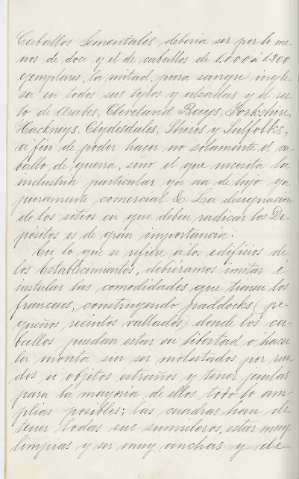 Caballos Sementales, debería ser por lo me-
nos de doce y el de caballos de 1.000 á 1.200
ejemplares, la mitad, pura sangre ingle-
sa en todos sus tipos y alzadas y el res-
to de Arabes, Cleveland Bayes, Yorkshire,
Hackneys, Clydesdales, Shires y Sulfolks,
á fin de poder hacer no solamente el ca-
ballo de guerra, sino el que necesita la
industria particular ya sea de lujo ya
puramente comercial & La designación
de los sitios en que deben radicar los De-
pósitos es de gran importancia.
En lo que se refiere á los edificios de
los Establecimientos, deberiamos imitar é
instalar las comodidades que tienen los
franceses, construyendo paddocks, pe-
queños recintos vallados, donde los ca-
ballos puedan estar en libertad ó hacer
la monta sin ser molestados por rui-
dos ú objetos extraños y tener
para la mayoria de ellos todo lo am-
plias posibles; las cuadras han de
tener todas sus sumideros, estar muy
limpias y ser muy anchas y